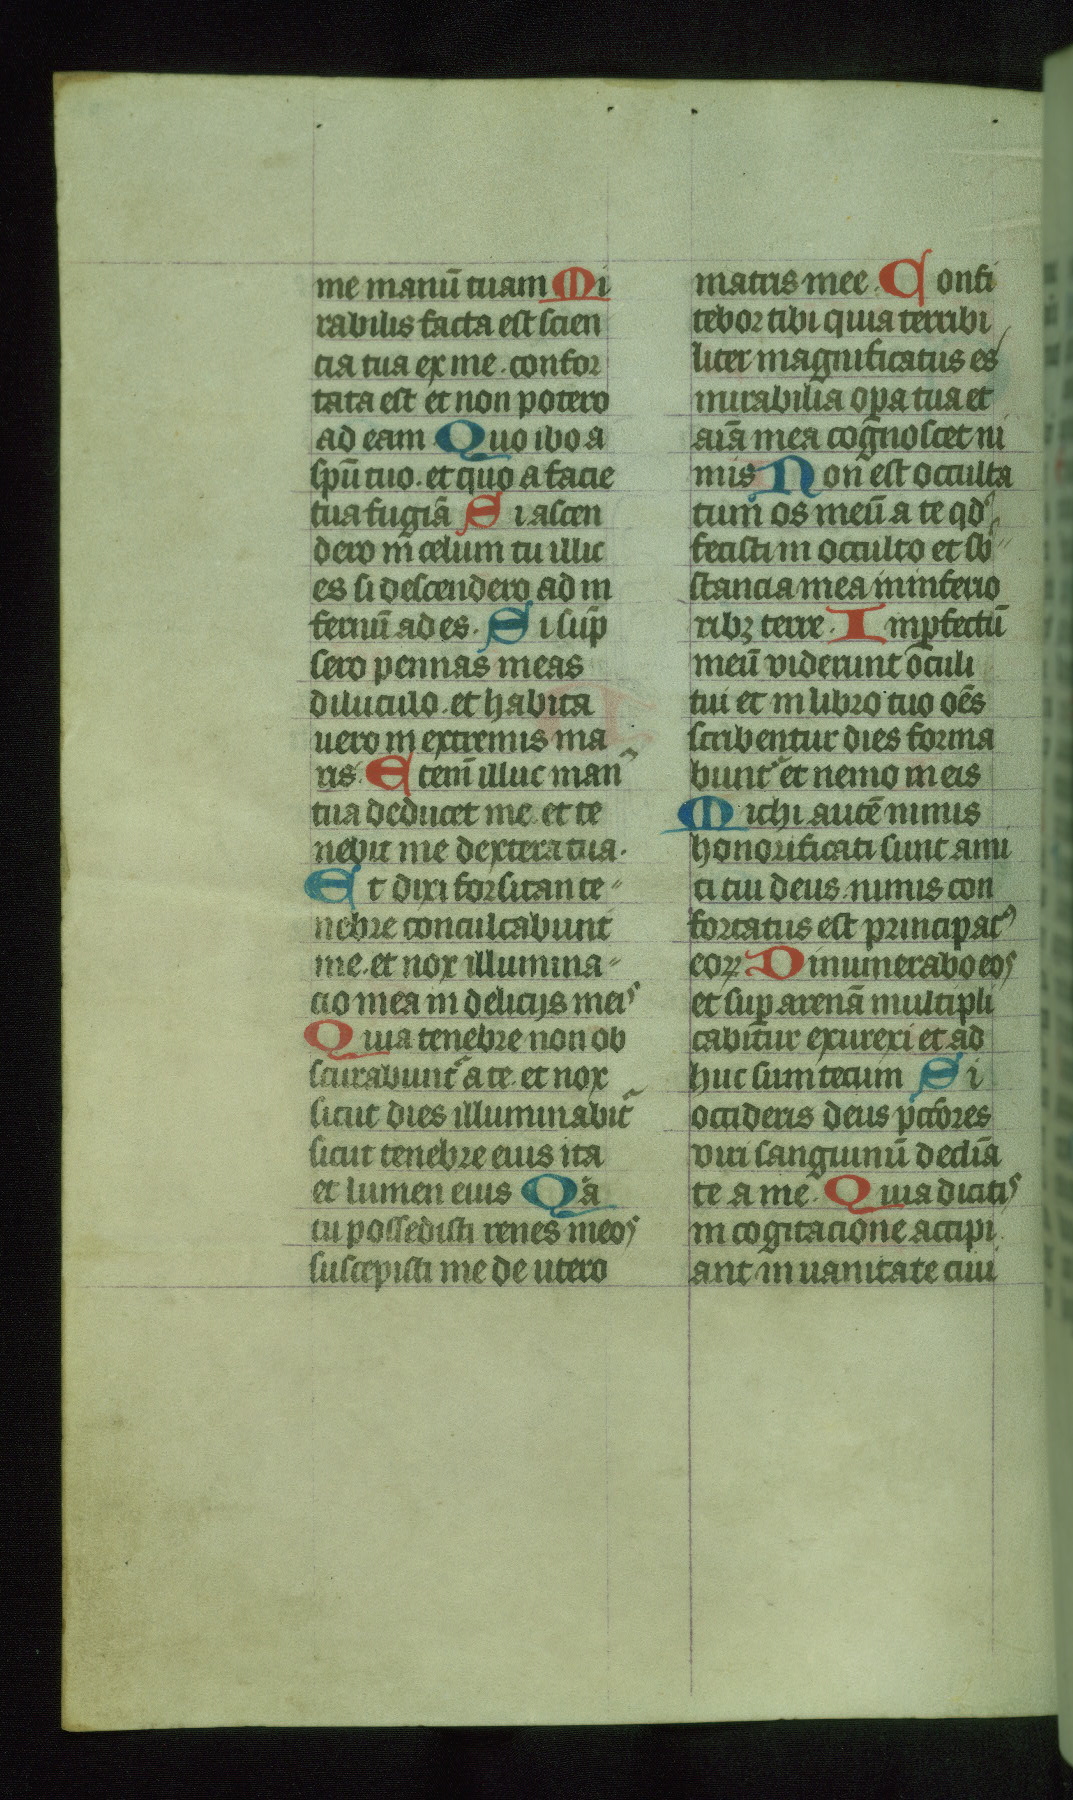 me manū tuam Mi
rabilis facta est scien
cia tua ex me. confor
tata est et non potero
ad eam Quo ibo a
spū tuo. et quo a facie
tua fugiā Si ascen
dero in celum tu illic
es si descendero ad in
fernū ades. Si sūp
sero pennas meas
diluculo. et habita
uero in extremis ma
ris. Eteni illuc man᾽
tua deducet me. et te
nebit me dextera tua.
Et dixi forsitan te-
nebre conculcabunt
me. et nox illumina-
cio mea in delicijs meis
Quia tenebre non ob
scurabunt᾽ a te. et nox
sicut dies illuminabit᾽
sicut tenebre eius ita
et lumen eius Qᵃ
tu possedisti renes meos
suscepisti me de utero
matris mee. Confi
tebor tibi quia terribi
liter magnificatus es
mirabilia oꝑa tua et
aiā mea cognoscet ni
mis Non est occulta
tum os meū a te qd᾽
fecisti in occulto et sb᾽-
stancia mea in inferio
ribꝫ terre. Imꝑfectū
meū viderunt oculi
tui et in libro tuo oēs
scribentur dies forma
bunt᾽ et nemo in eis
Michi autē nimis
honorificati sunt ami
ci tui deus. nimis con
fortatus est principatꝰ
eoꝝ Dinumerabo eos
et suꝑ arenā multipli
cabuntur exurexi et ad
huc sum tecum Si
occideris deus pctores
viri sanguinū declīa
te a me. Quia dicitis
in cogitacione accipi
ant in uanitate ciui